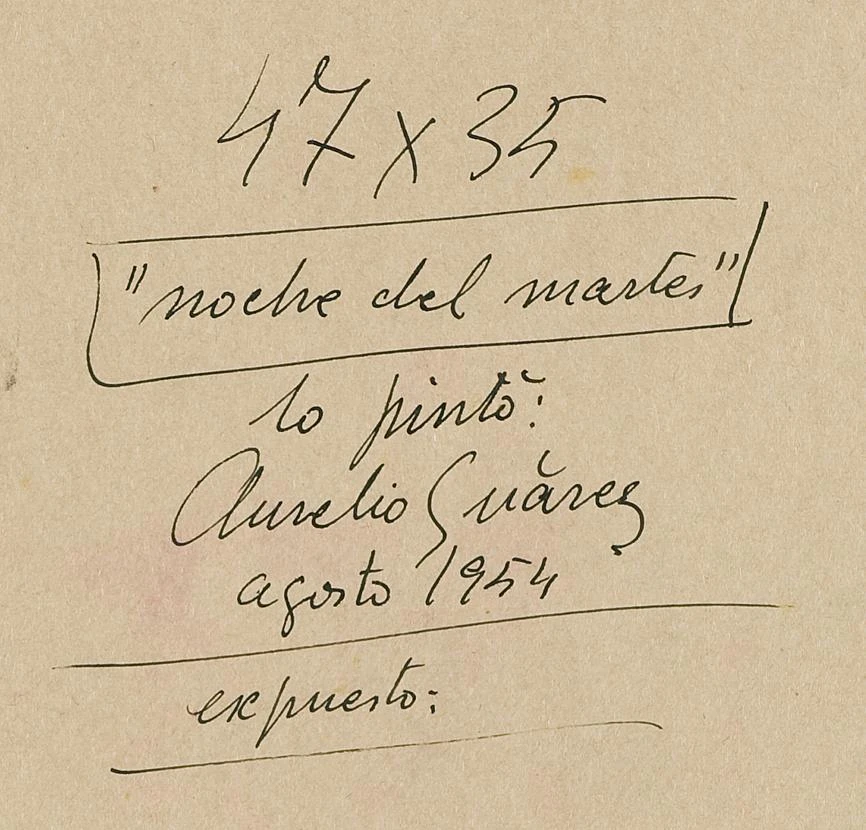 47 x 35
"noche del martes"
lo pintó:
Aurelio Suárez
agosto 1954
expuesto: